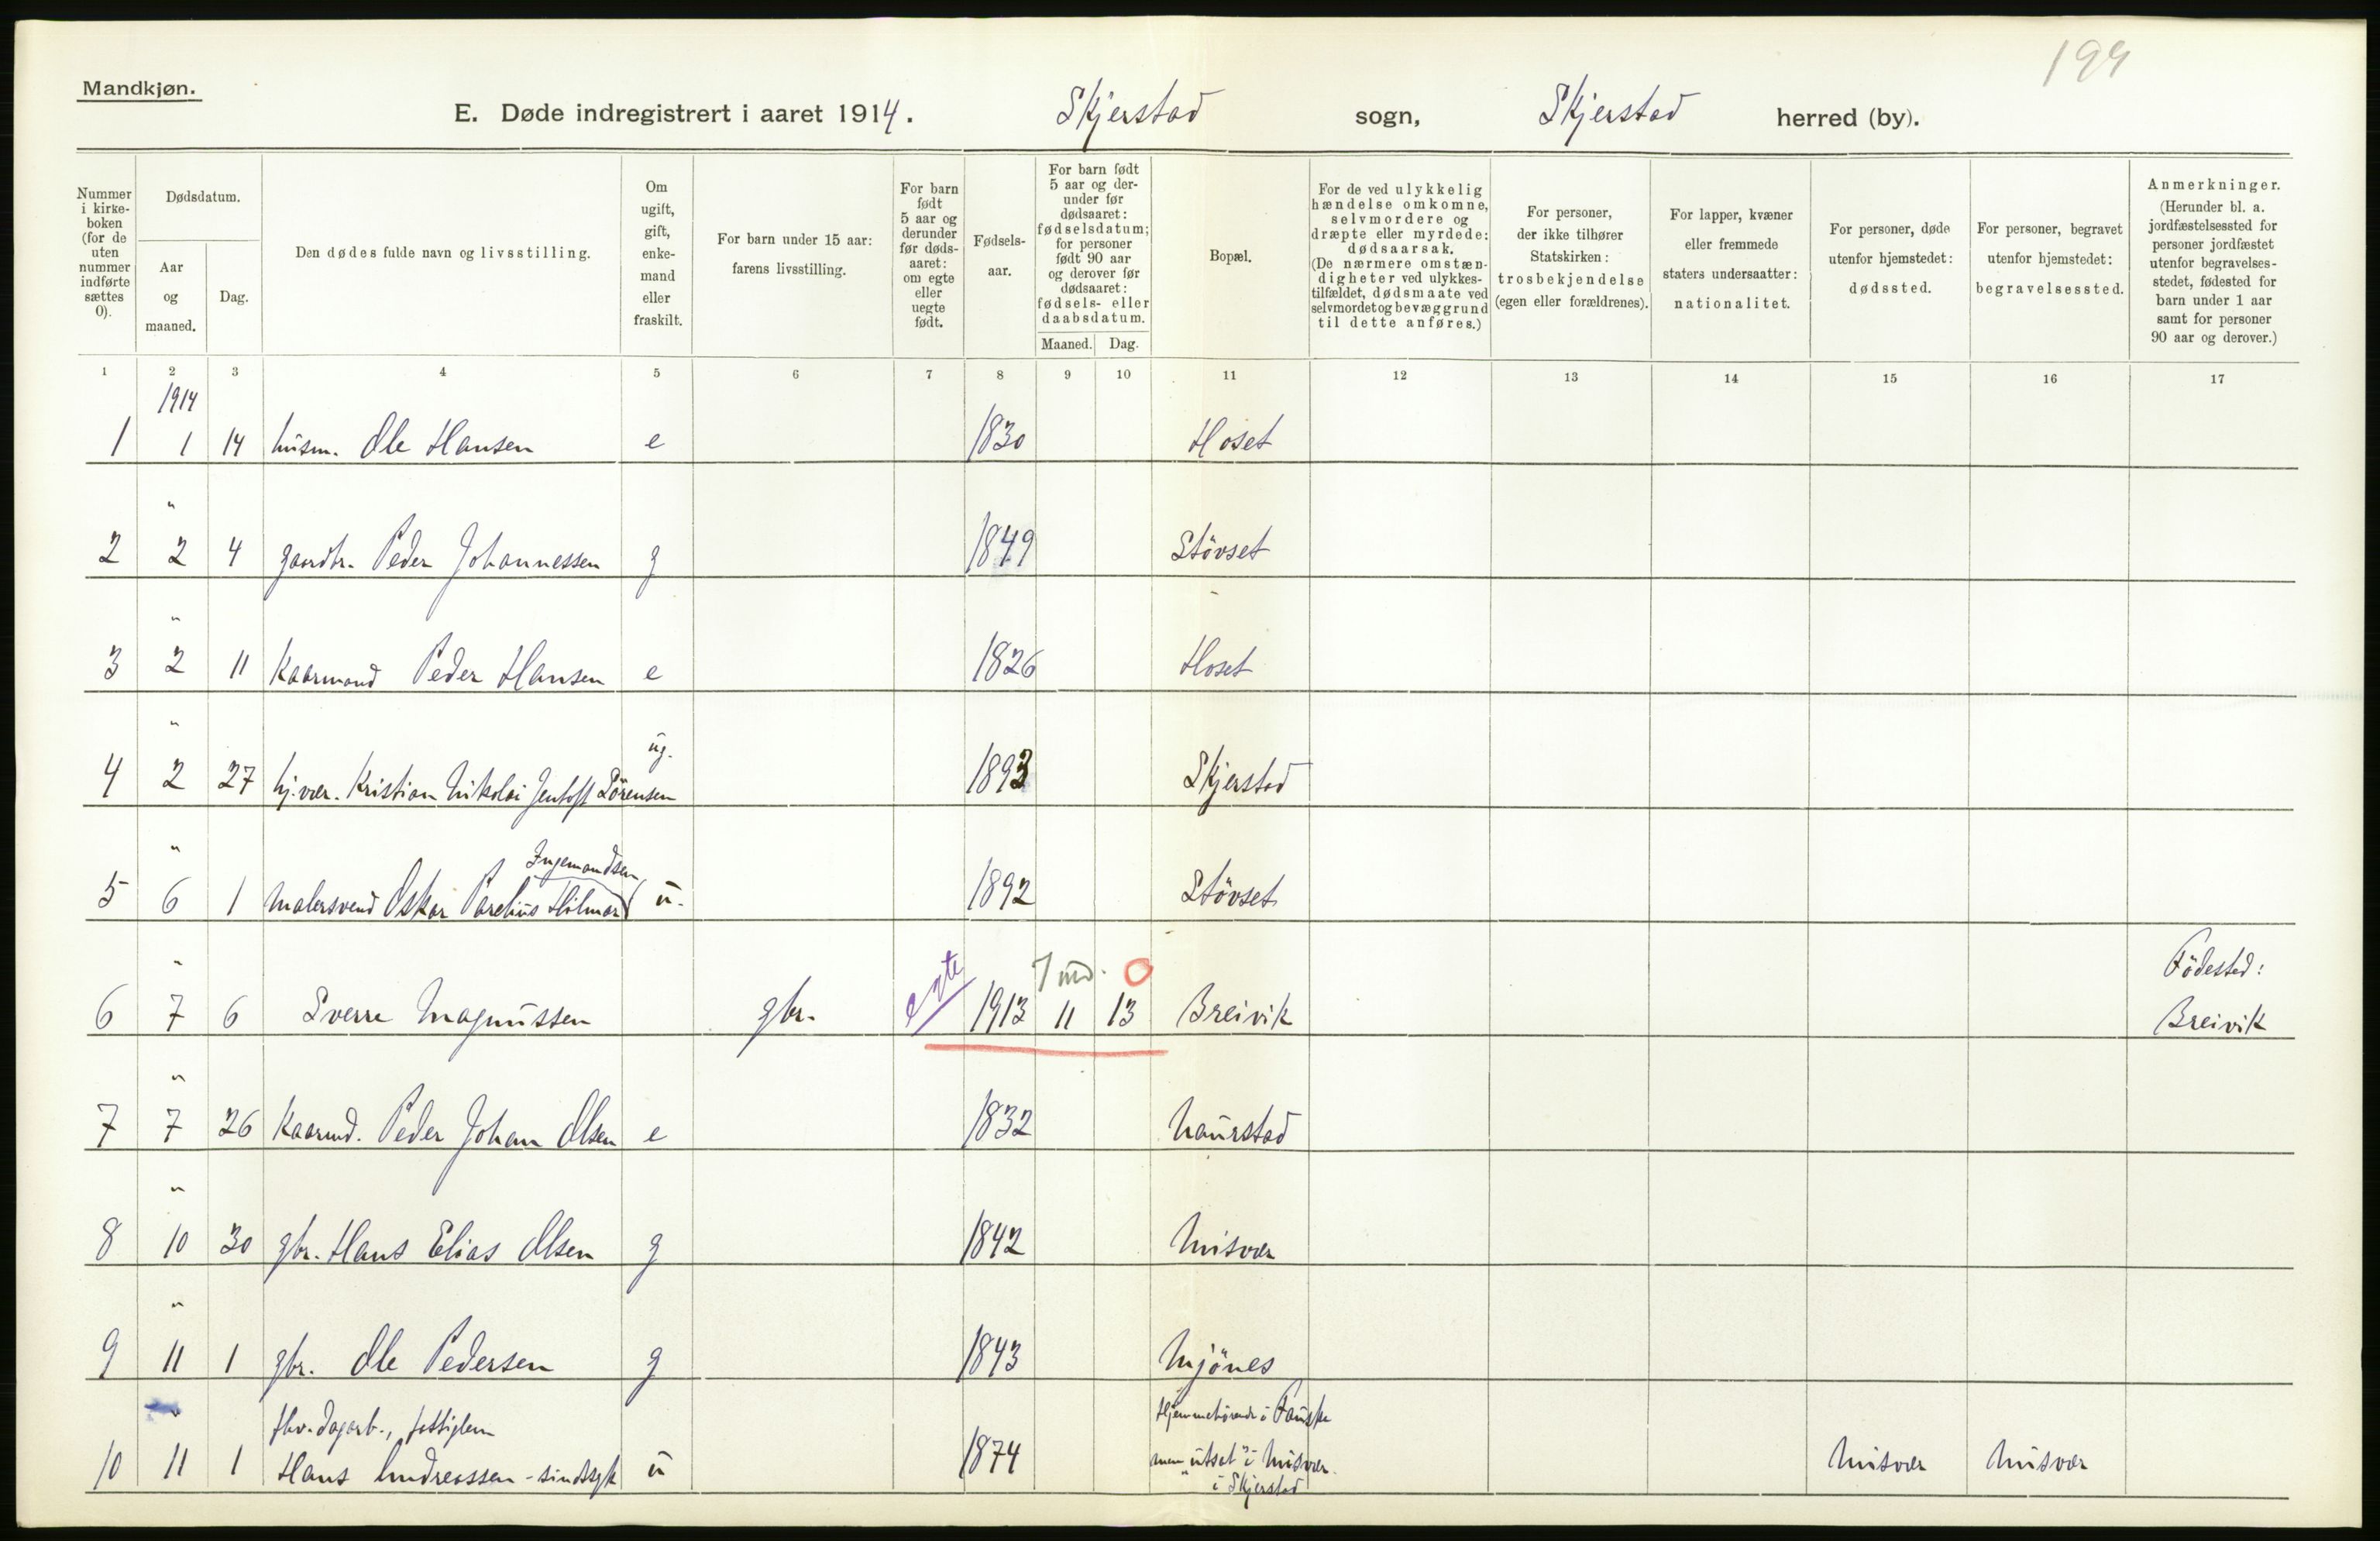 199
Mandkjøn.
E. Døde indregistrert i aaret 1914. Skjerstad sogn, Skjerstad herred (by).
Nummer i kirke-boken (for de uten nummer indførte sættes 0).
Dødsdatum.
Aar og maaned.
Dag.
Den dødes fulde navn og livsstilling.
Om ugift, gift, enke-mand eller fraskilt.
For barn under 15 aar: farens livsstilling.
For barn født 5 aar og derunder før døds-aaret: om egte eller uegte født.
Fødsels-aar.
For barn født 5 aar og der-under før dødsaaret: fødselsdatum; for personer født 90 aar og derover før dødsaaret: fødsels- eller daabsdatum.
Maaned. Dag.
Bopæl.
For de ved ulykkelig hændelse omkomne, selvmordere og dræpte eller myrdede: dødsaarsak. (De nærmere omstæn-digheter ved ulykkes-tilfældet, dødsmaate ved selvmordet og bevæggrund til dette anføres.)
For personer, der ikke tilhører Statskirken: trosbekjendelse (egen eller forældrenes).
For lapper, kvæner eller fremmede staters undersaatter: nationalitet.
For personer, døde utenfor hjemstedet: dødssted.
For personer, begravet utenfor hjemstedet: begravelsessted.
Anmerkninger. (Herunder bl. a. jordfæstelsessted for personer jordfæstet utenfor begravelses-stedet, fødested for barn under 1 aar samt for personer 90 aar og derover.)
1 2 3 4 5 6 7 8 9 10 11 12 13 14 15 16 17
1914
1 1 14 husm. Ole Hansen e 1830 Hoset
"
2 2 4 gaardbr. Peder Johannessen g 1849 Støvset
"
3 2 11 Kaarmand Peder Hansen e 1826 Hoset
"
ug.
4 2 27 hj.vær. Kristian Nikolai Jentoft Sörensen 1893 Skjerstad
"
Ingemandsen
5 6 1 Malersvend Oskar Parelius Hilmar u. 1892 Stövset
" egte 7 md. 0 Födested:
6 7 6 Sverre Magnussen gbr. 1913 11 13 Breivik Breivik
"
7 7 26 Kaarmd. Peder Johan Olsen e 1832 Naurstad
"
8 10 30 gbr. Hans Elias Olsen g 1842 Misvær
"
9 11 1 gbr. Ole Pedersen g 1843 Mjönes
" fhv. dagarb., fattiglem Hjemmehörende i Fauske
10 11 1 Hans Andreassen - sindssyk u 1874 men "utsat" i Misvær Misvær Misvær
i Skjerstad